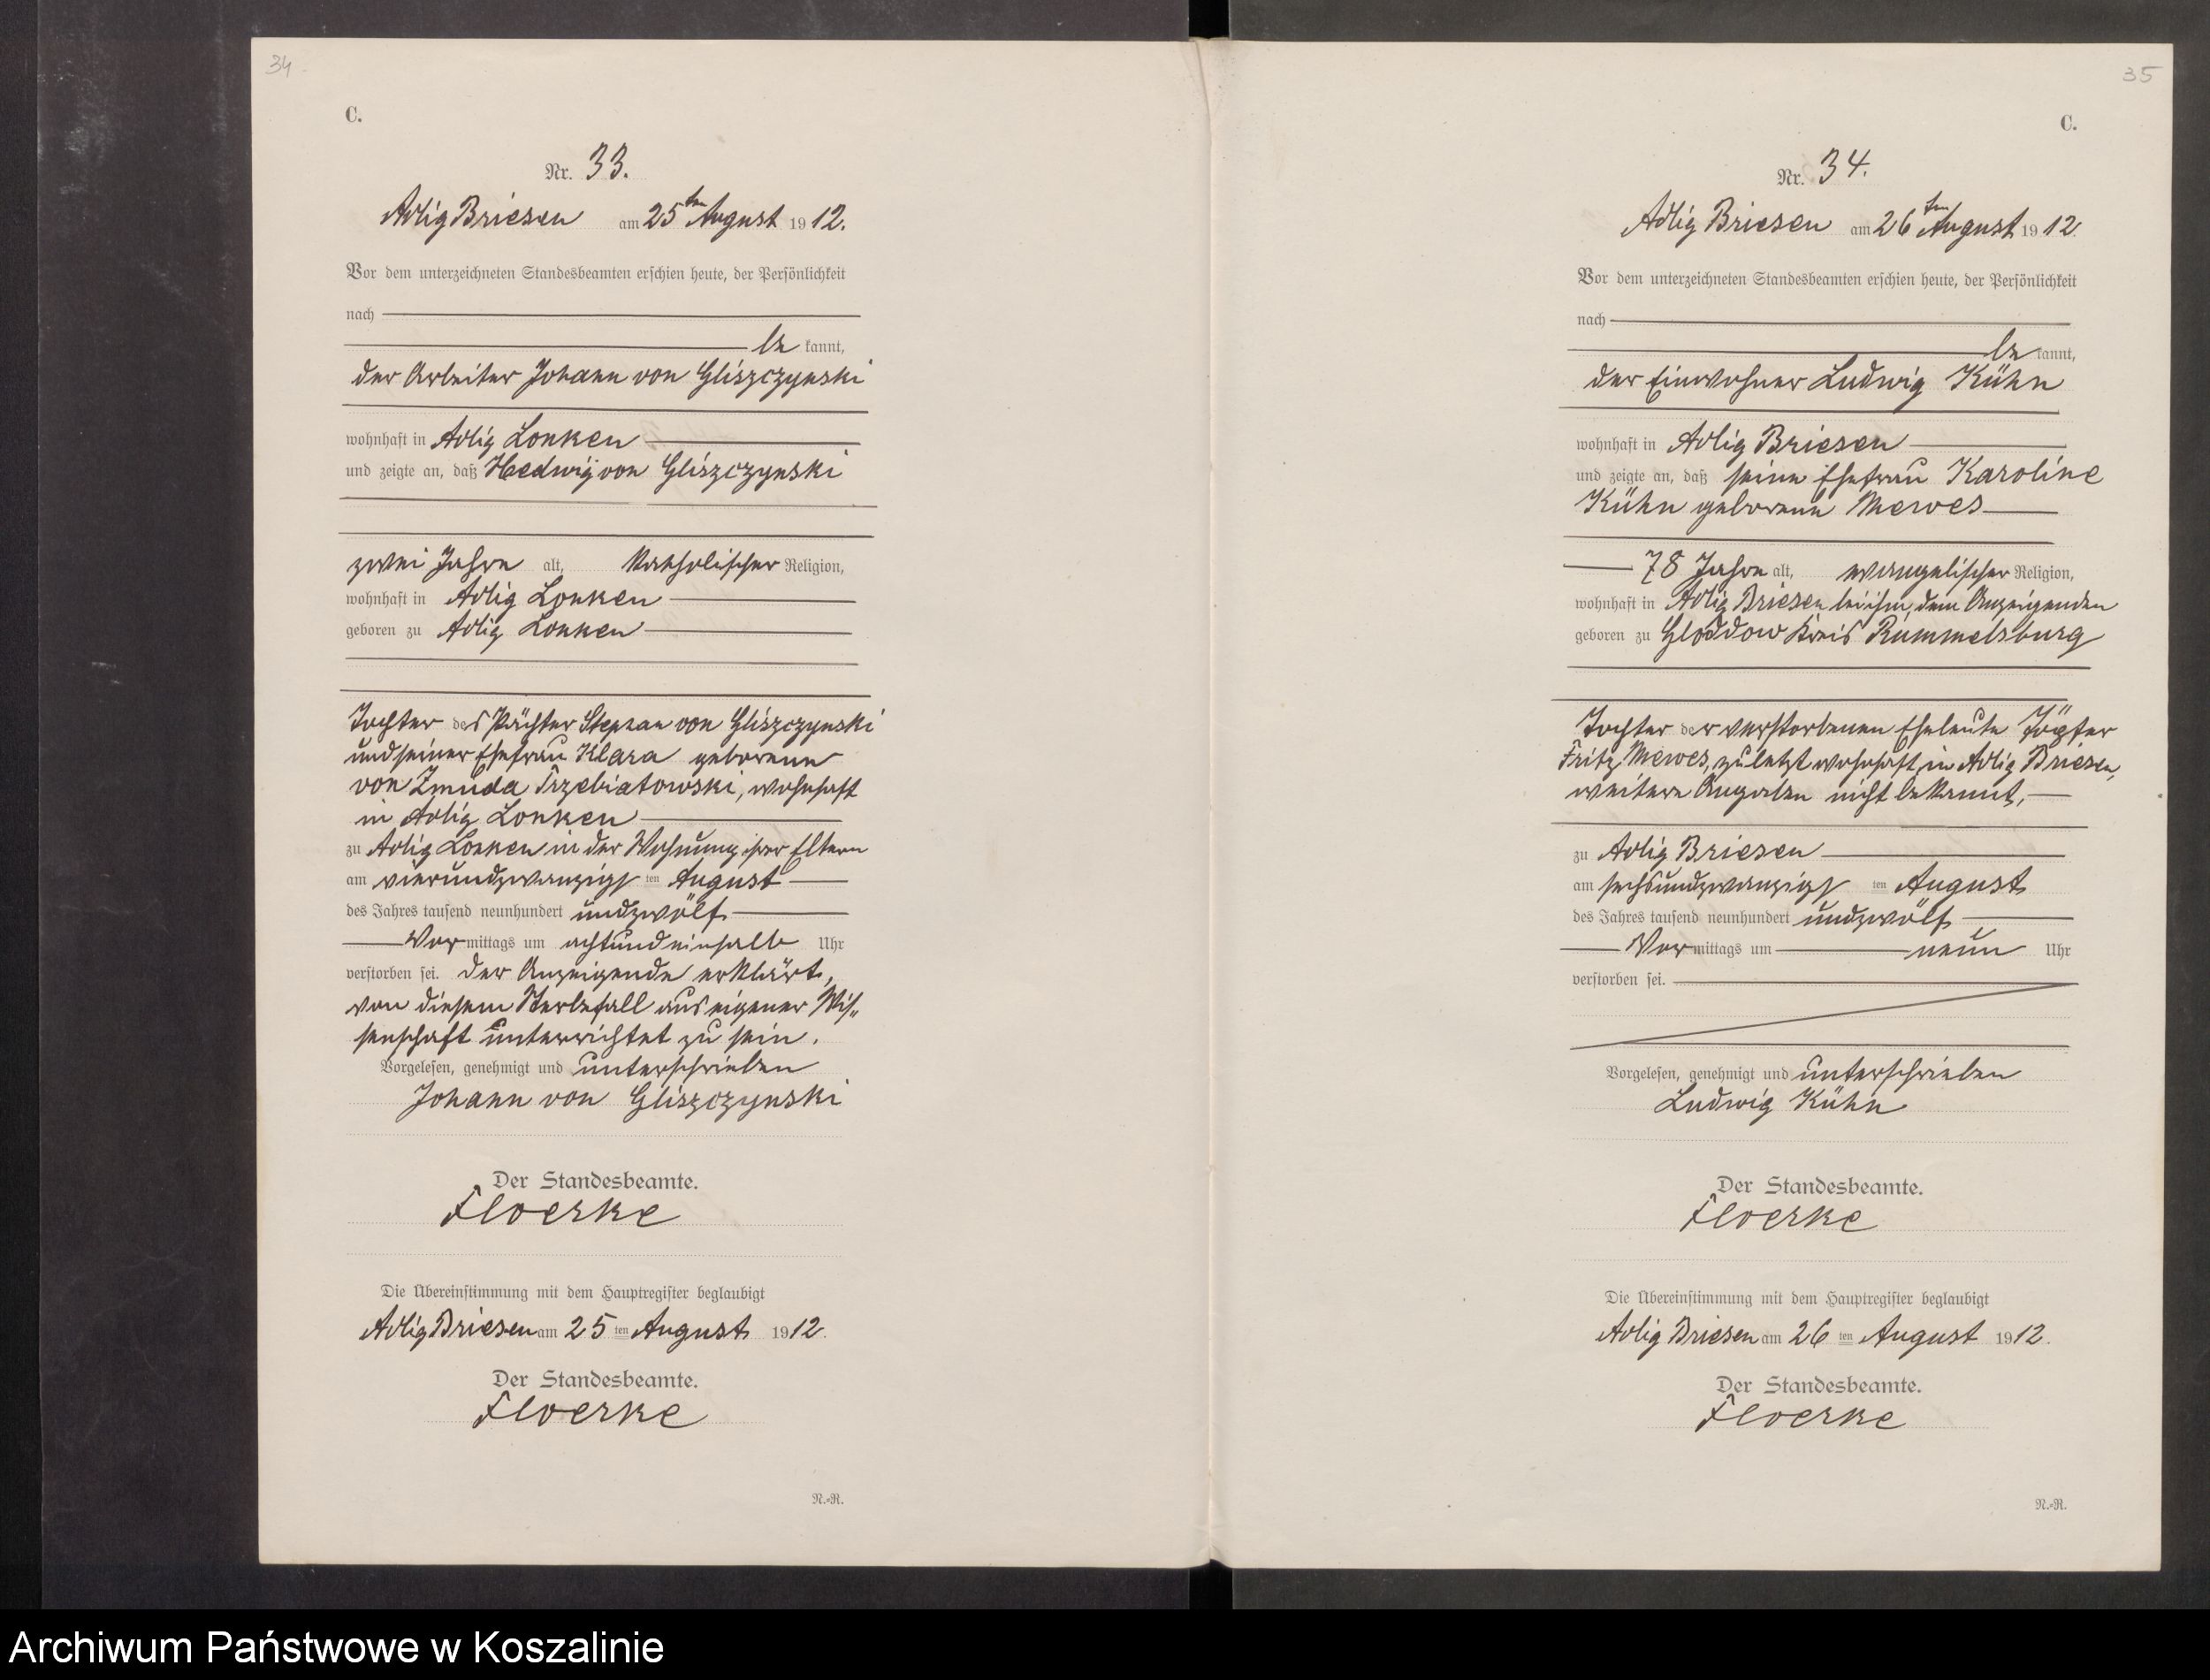 34
C.
Nr. 33.
Adlig Briesen am 25ten August 1912.
Vor dem unterzeichneten Standesbeamten erschien heute, der Persönlichkeit
nach
be kannt,
der Arbeiter Johann von Gliszczynski
wohnhaft in Adlig Lonken
und zeigte an, daß Hedwig von Gliszczynski
zwei Jahre alt, katholischer Religion,
wohnhaft in Adlig Lonken
geboren zu Adlig Lonken
Tochter des Pächter Stephan von Gliszczynski
und seiner Ehefrau Klara geborene
von Zmuda Trzebiatowski, wohnhaft
in Adlig Lonken
zu Adlig Lonken in der Wohnung ihrer Eltern
am vierundzwanzigs ten August
des Jahres tausend neunhundert undzwölf
Vor mittags um achtundeinhalb Uhr
verstorben sei. Der Anzeigende erklärt,
von diesem Sterbefall aus eigener Wis-
senschaft unterrichtet zu sein.
Vorgelesen, genehmigt und unterschrieben
Johann von Gliszczynski
Der Standesbeamte.
Floerke
Die Übereinstimmung mit dem Hauptregister beglaubigt
Adlig Briesen am 25 ten August 1912.
Der Standesbeamte.
Floerke
N.-R.
35
C.
Nr. 34.
Adlig Briesen am 26ten August 1912.
Vor dem unterzeichneten Standesbeamten erschien heute, der Persönlichkeit
nach
be kannt,
der Einwohner Ludwig Kühn
wohnhaft in Adlig Briesen
und zeigte an, daß seine Ehefrau Karoline
Kühn geborene Mewes
78 Jahre alt, evangelischer Religion,
wohnhaft in Adlig Briesen bei ihm, dem Anzeigenden
geboren zu Gloddow Kreis Rummelsburg
Tochter der verstorbenen Eheleute Töpfer
Fritz Mewes, zuletzt wohnhaft in Adlig Briesen,
weitere Angaben nicht bekannt,
zu Adlig Briesen
am sechsundzwanzigs ten August
des Jahres tausend neunhundert undzwölf
Vor mittags um neun Uhr
verstorben sei.
Vorgelesen, genehmigt und unterschrieben
Ludwig Kühn
Der Standesbeamte.
Floerke
Die Übereinstimmung mit dem Hauptregister beglaubigt
Adlig Briesen am 26 ten August 1912.
Der Standesbeamte.
Floerke
N.-R.
Archiwum Państwowe w Koszalinie